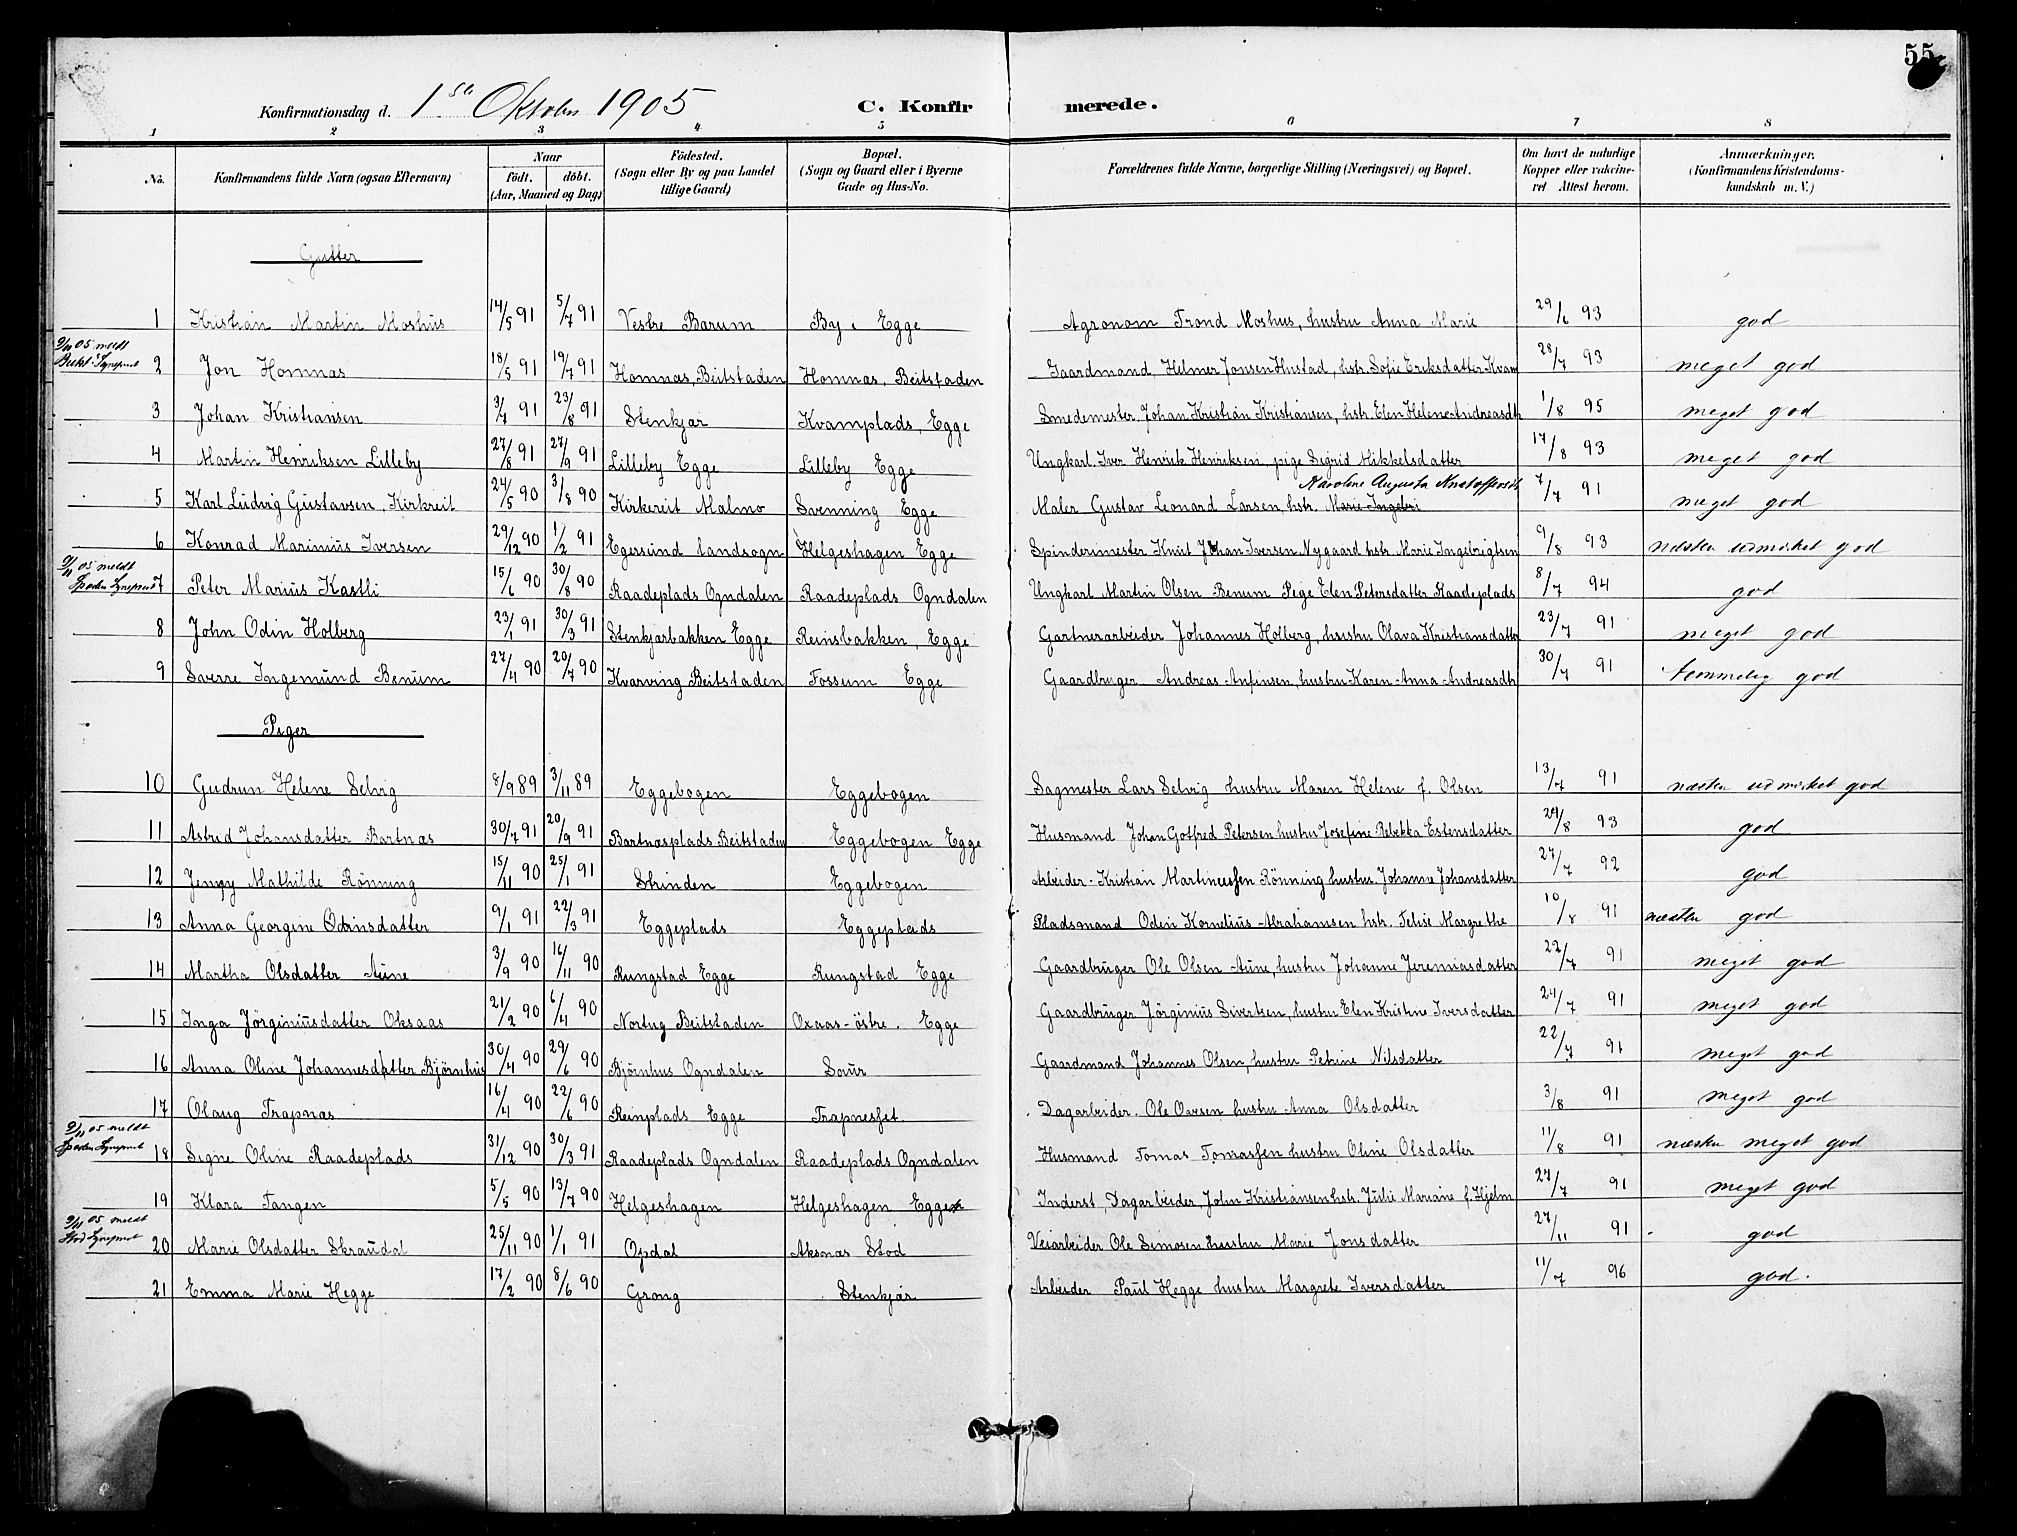 55
Konfirmationsdag d. 1ste Oktober 1905 C. Konfirmerede.
1 2 3 4 5 6 7 8
No. Konfirmandens fulde Navn (ogsaa Efternavn) Naar födt. döbt. (Aar, Maaned og Dag) Födested. (Sogn eller By og paa Landet tillige Gaard) Bopæl. (Sogn og Gaard eller i Byerne Gade og Hus-No. Forældrenes fulde Navne, borgerlige Stilling (Næringsvei) og Bopæl. Om havt de naturlige Kopper eller vakcineret. Attest herom. Anmærkninger. (Konfirmandens Kristendomskundskab m. V.)
Gutter
1 Kristian Martin Moshus 14/5 91 5/7 91 Vestre Barum By i Egge Agronom Trond Moshus, hustru Anna Marie 29/6 93 god
9/11 05 meldt
2 Jon Homnas 18/5 91 19/7 91 Homnas, Beitstaden Homnas, Beitstaden Gaardmand, Helmer Jonsen Hustad, hstr. Sofie Eriksdatter Kvam 28/7 93 meget god
3 Johan Kristiansen 3/4 91 23/8 91 Stenkjar Kvamplads, Egge Smedemester, Johan Kristian Kristiansen, hstr. Elen Helene Andreasdtr 1/8 95 meget god
4 Martin Henriksen Lilleby 27/8 91 27/9 91 Lilleby Egge Lilleby Egge Ungkarl. Iver Henrik Henriksen pige Sigrid Mikkelsdatter 17/8 93 meget god
Karoline Augusta
5 Karl Ludvig Gustavsen, Kirkreit 24/5 90 31/8 90 Kirkereit Malmo Svenning Egge Maler Gustav Leonard Larsen, hstr. Marie Ingebr 7/7 91 meget god
6 Konrad Marinius Iversen 29/12 90 1/2 91 Egersund landsogn Helgeshagen Egge Spinderimester Knut Johan Iversen Nygaard hstr. Marie Ingebrigtsen 9/8 93 næsten udmirket god
9/11 05 meldt
7 Peter Marius Kastli 15/6 90 30/8 90 Raadeplads Ogndalen Raadeplads Ogndalen Ungkarl Martin Olsen Benum Pige Elen Petersdatter Raadeplads 8/7 94 god
8 John Odin Holberg 23/1 91 30/3 91 Stenkjarbakken Egge Reinsbakken, Egge Gartnerarbeider Johannes Holberg, hustru Olava Kristiansdatter 23/7 91 meget god
9 Sverre Ingemund Benum 27/4 90 20/7 90 Kvarving Beitstaden Fossum Egge Gaardbruger Andreas Anfinsen, hustru Karen Anna Andreasdtr 30/7 91 temmelig god
Piger
10 Gudrun Helene Selvig 8/9 89 3/11 89 Eggebogen Eggebogen Sagmester Lars Selvig hustru Maren Helene f. Olsen 13/7 91 næsten udmirket god
11 Astrid Johansdatter Bartnas 30/7 91 20/9 91 Bartnasplads Beitstaden Eggebogen Egge Husmand Johan Gotfred Petersen hustru Josefine Rebekka Estensdatter 24/8 93 god
12 Jenny Mathilde Rönning 15/11 90 25/1 91 Strinden Eggebogen Arbeider Kristian Martinussen Rönning hustru Johanne Johansdatter 27/7 92 god
13 Anna Georgine Odinsdatter 9/1 91 22/3 91 Eggeplads Eggeplads Pladsmand Odin Kornelius Abrahamsen hstr. Margrethe 10/8 91 næsten god
14 Martha Olsdatter Aune 3/9 90 16/11 90 Rungstad Egge Rungstad Egge Gaardbruger Ole Olsen Aune, hustru Johanne Jeremiasdatter 22/7 91 meget god
15 Inga Jörginiusdatter Oksaas 21/2 90 6/4 90 Nortug Beitstaden Oxaas-östre. Egge Gaardbruger Jörginius Sivertsen, hustru Elen Kristine Iversdatter 24/7 91 meget god
16 Anna Oline Johannesdatter Bjørnhus 30/4 90 29/6 90 Bjørnhus Ogndalen Saur Gaardmand Johannes Olsen, hustru Petrine Nilsdatter 22/7 91 meget god
17 Olaug Trapnas 16/4 90 22/6 90 Reinplads Egge Trapnesset Dagarbeider. Ole hustru Anna Olsdatter 3/8 91 meget god
9/11 05 meldt
18 Signe Oline Raadeplads 31/12 90 30/3 91 Raadeplads Ogndalen Raadeplads Ogndalen Husmand Tomas Tomassen hustru Oline Olsdatter 11/8 91 næsten meget god
19 Klara Tangen 5/5 90 13/7 90 Helgeshagen Helgeshagen Egge Inderst, Dagarbeider, John Kristiansen hstr. Julie Mariane f. Hjelm 27/7 91 meget god
9/11 05 meldt
20 Marie Olsdatter Skraudal 25/11 90 1/1 91 Opdal Aksnas Stod Veiarbeider Ole Simosen hustru Marie Jonsdatter 27/11 91 god
21 Emma Marie Hegge 17/2 90 8/6 90 Grong Stenkjar Arbeider Paul Hegge hustru Margrete Iversdatter 11/7 96 god.